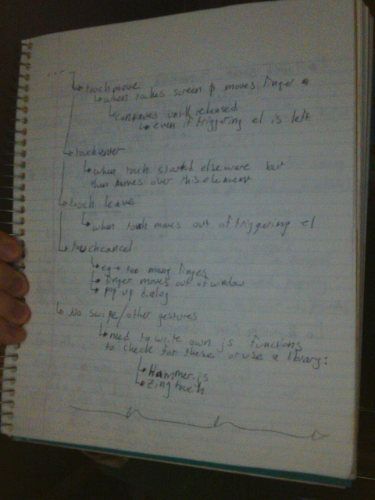 touchmove
when touches screen & moves finger
continues until released
even if triggering el is left
touchenter
when touch started elseware but
then moves over this element
touch leave
when touch moves out of triggering el
touchcancel
eg → too many fingers
finger moves out of window
pop up dialog
No swipe/other gestures
need to write own js functions
to check for these or use a library:
Hammer.js
Zingtouch